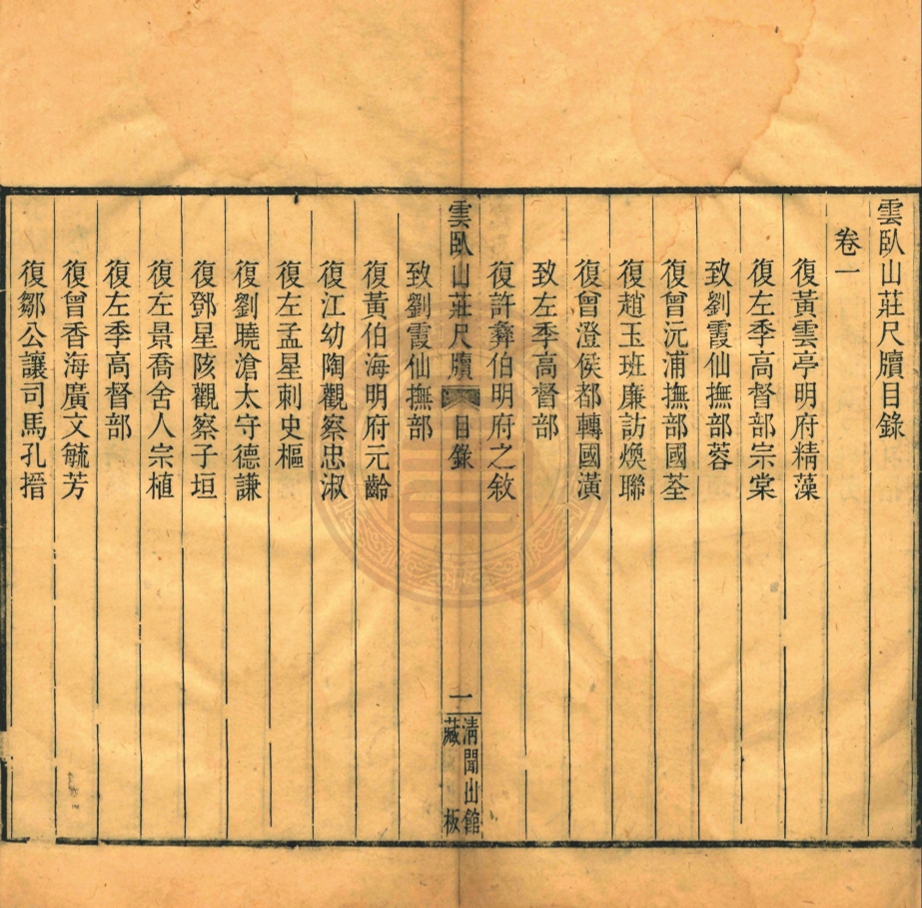 雲臥山莊尺牘目錄
卷一
復黃雲亭明府精藻
復左季高督部宗棠
致劉霞仙撫部蓉
復曾沅浦撫部國荃
復趙玉班廉訪煥聯
復曾澄侯都轉國潢
致左季高督部
復許彝伯明府之敘
雲臥山莊尺牘 目錄 一 清聞山館藏板
致劉霞仙撫部
復黃伯海明府元齡
復江幼陶觀察忠淑
復左孟星刺史樞
復劉曉滄太守德謙
復鄧星陔觀察子垣
復左景喬舍人宗植
復左季高督部
復曾香海廣文毓芳
復鄒公讓司馬孔搢